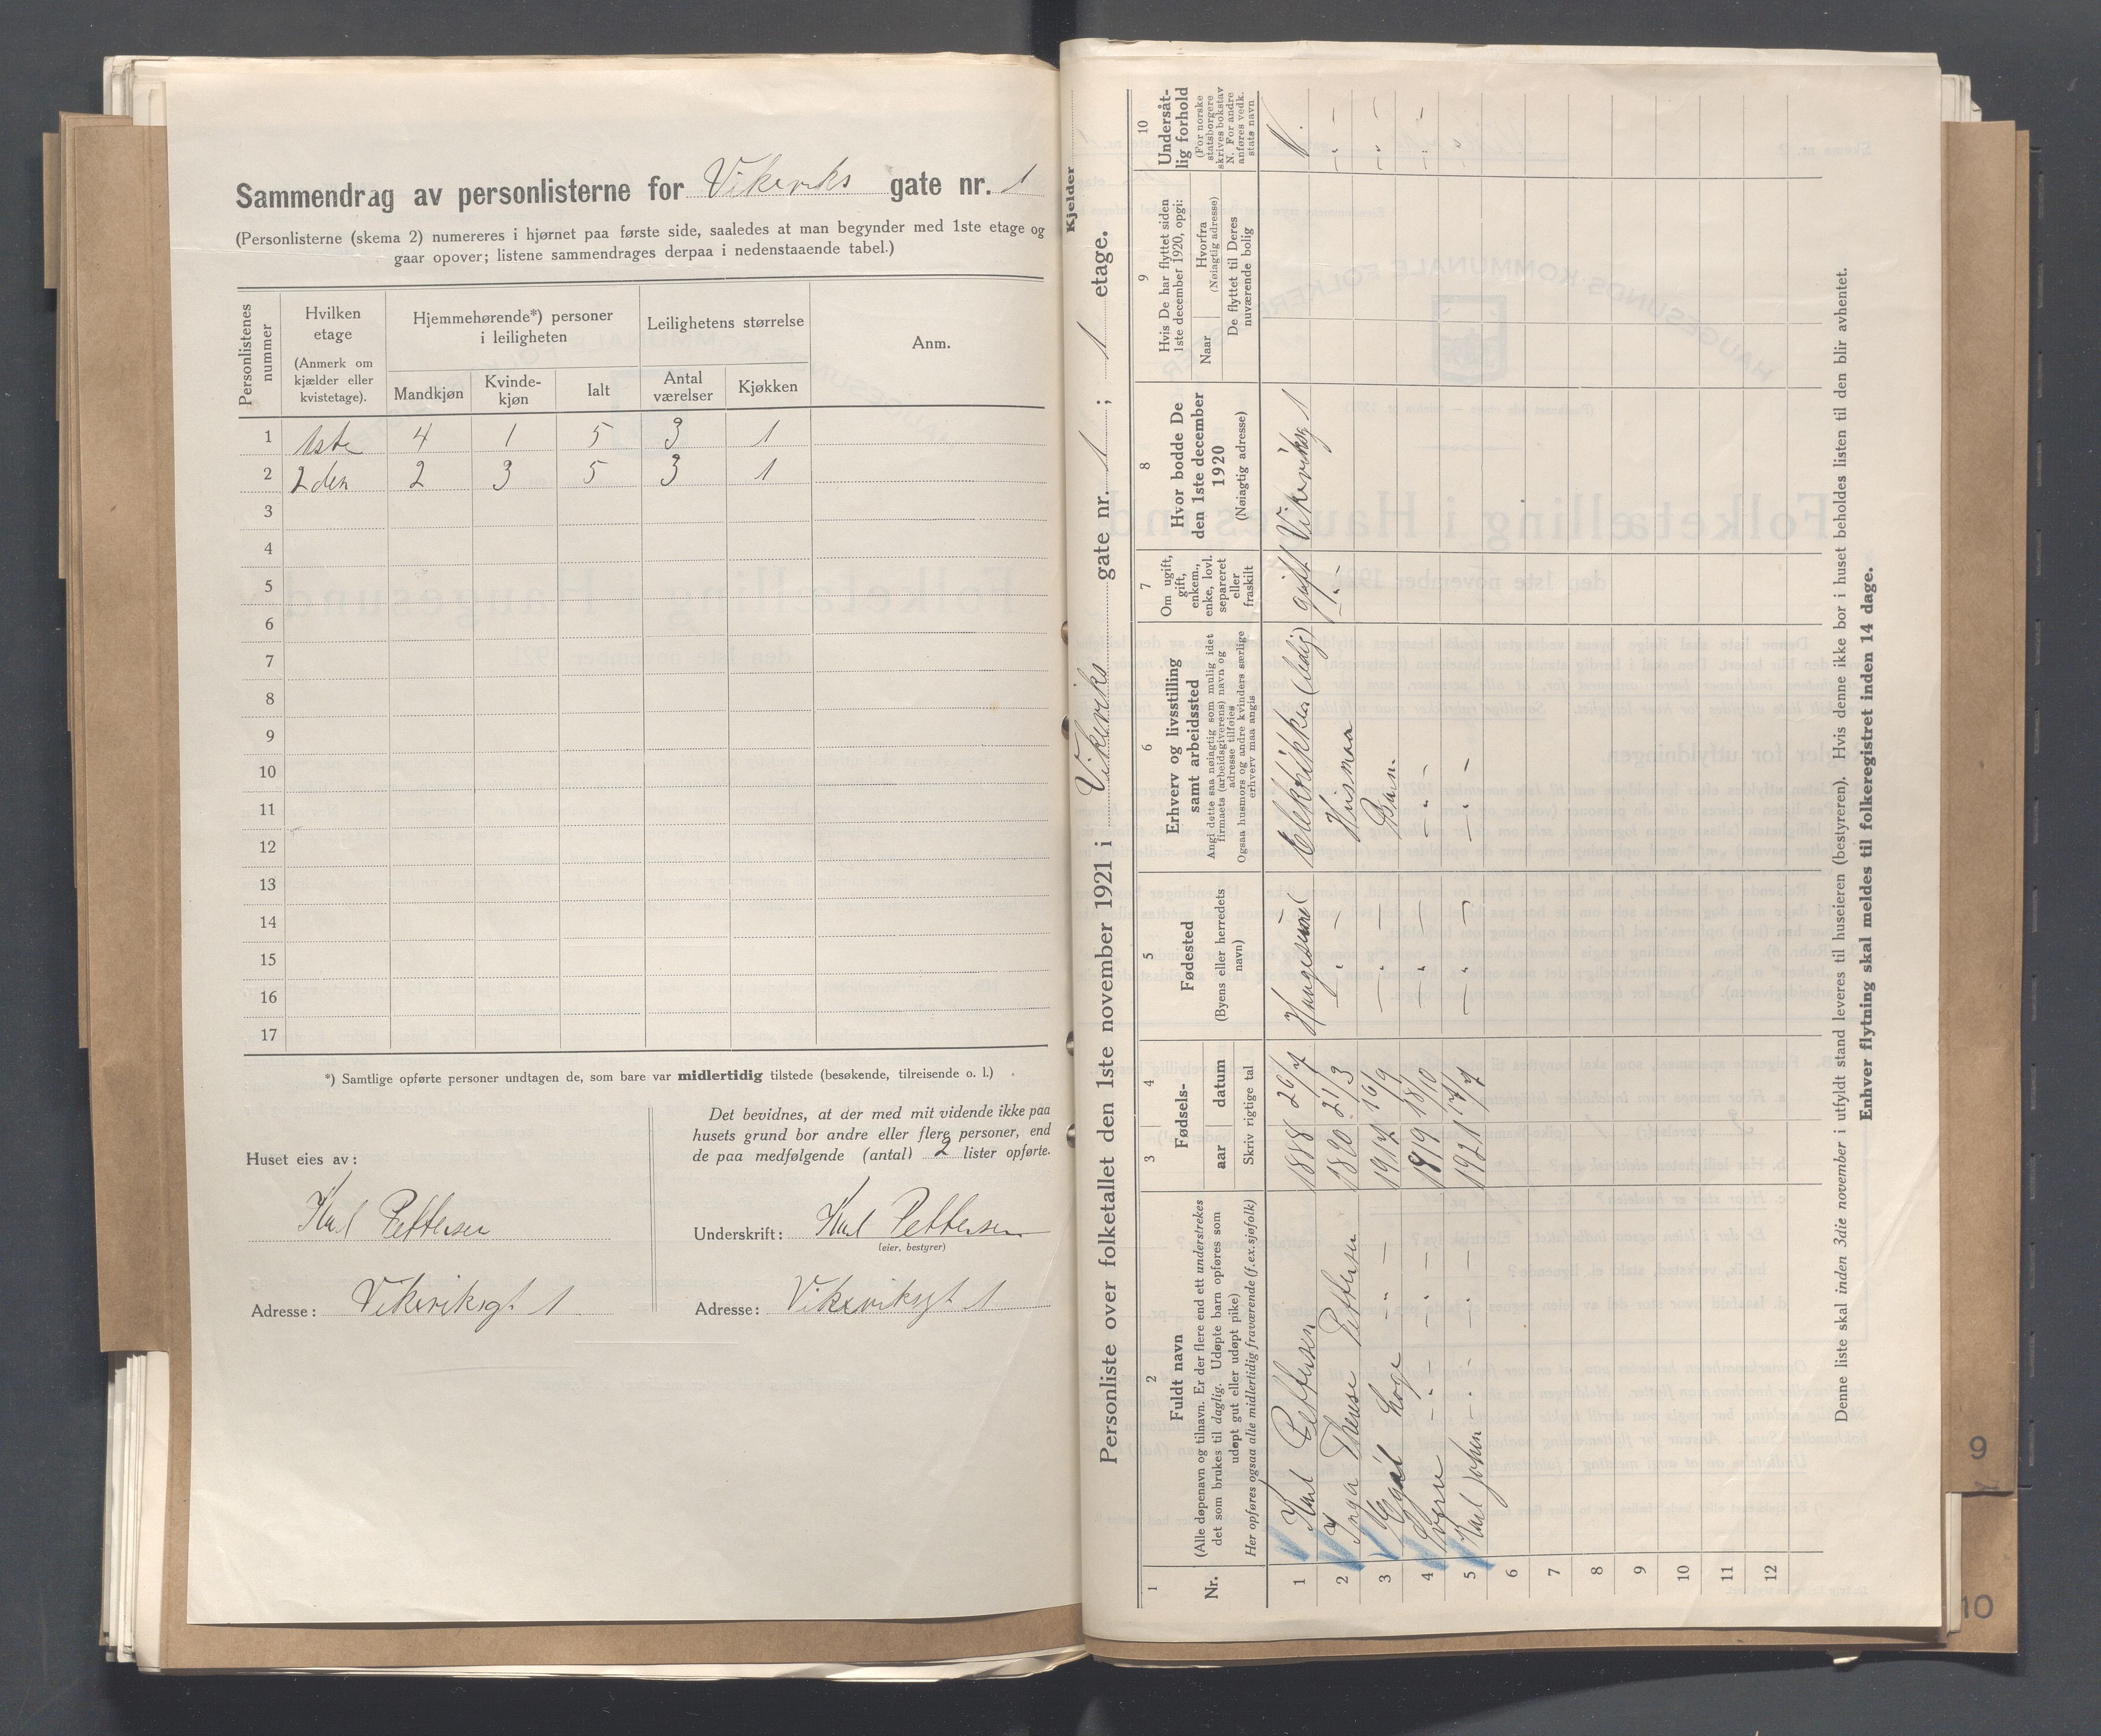 Sammendrag av personlisterne for Vikeviks gate nr. 1
(Personlisterne (skema 2) numereres i hjørnet paa første side, saaledes at man begynder med 1ste etage og
gaar opover; listene sammendrages derpaa i nedenstaaende tabel.)
Personlistenes nummer
Hvilken etage (Anmerk om kjælder eller kvistetage).
Hjemmehørende*) personer i leiligheten
Leilighetens størrelse
Anm.
Mandkjøn Kvinde-kjøn Ialt Antal værelser Kjøkken
1 1ste 4 1 5 3 1
2 2den 2 3 5 3 1
3
4
5
6
7
8
9
10
11
12
13
14
15
16
17
*) Samtlige opførte personer undtagen de, som bare var midlertidig tilstede (besøkende, tilreisende o. l.)
Huset eies av:
Karl Pettersen
Adresse: Vikeviksgt 1
Det bevidnes, at der med mit vidende ikke paa
husets grund bor andre eller flere personer, end
de paa medfølgende (antal) 2 lister opførte.
Underskrift: Karl Pettersen
(eier, bestyrer)
Adresse: Vikeviksgt 1
Kjelder
Personliste over folketallet den 1ste november 1921 i Vikeviks gate nr. 1 ; 1 etage.
1 2 3 4 5 6 7 8 9 10
Nr.
Fuldt navn
(Alle døpenavn og tilnavn. Er der flere end ett understrekes
det som brukes til daglig. Udøpte barn opføres som
udøpt gut eller udøpt pike)
Her opføres ogsaa alle midlertidig fraværende (f.ex. sjøfolk)
Fødsels-
aar datum
Skriv rigtige tal
Fødested
(Byens eller herredets
navn)
Erhverv og livsstilling
samt arbeidssted
Angi dette saa nøiagtig som mulig idet
firmaets (arbeidsgiverens) navn og
adresse tilføies
Ogsaa husmors og andre kvinders særlige
erhverv maa angis
Om ugift,
gift,
enkem.,
enke, lovl.
separeret
eller
fraskilt
Hvor bodde De
den 1ste december
1920
(Nøiagtig adresse)
Hvis De har flyttet siden
1ste december 1920, opgi:
Naar
Hvorfra
(Nøiagtig adresse)
De flyttet til Deres
nuværende bolig
Undersåt-
lig forhold
(For norske
statsborgere
skrives bokstav
N. For andre
anføres vedk.
stats navn
1 Karl Pettersen 1888 26/7 Haugesund Elektrikker (ledig) gift Vikeviksg 1 N.
2 Inga Therese Pettersen 1890 21/3 -"- Husmor -"- -"-
3 Egil Loge -"- 1917 16/9 -"- Barn -"-
4 Sverre -"- -"- 1919 18/10 -"- -"- -"-
5 Karl Johan -"- -"- 1921 17/7 -"- -"- "
6
7
8
9
10
11
12
Denne liste skal inden 3die november i utfyldt stand leveres til huseieren (bestyreren). Hvis denne ikke bor i huset beholdes listen til den blir avhentet.
Enhver flytning skal meldes til folkeregistret inden 14 dage.
9
10